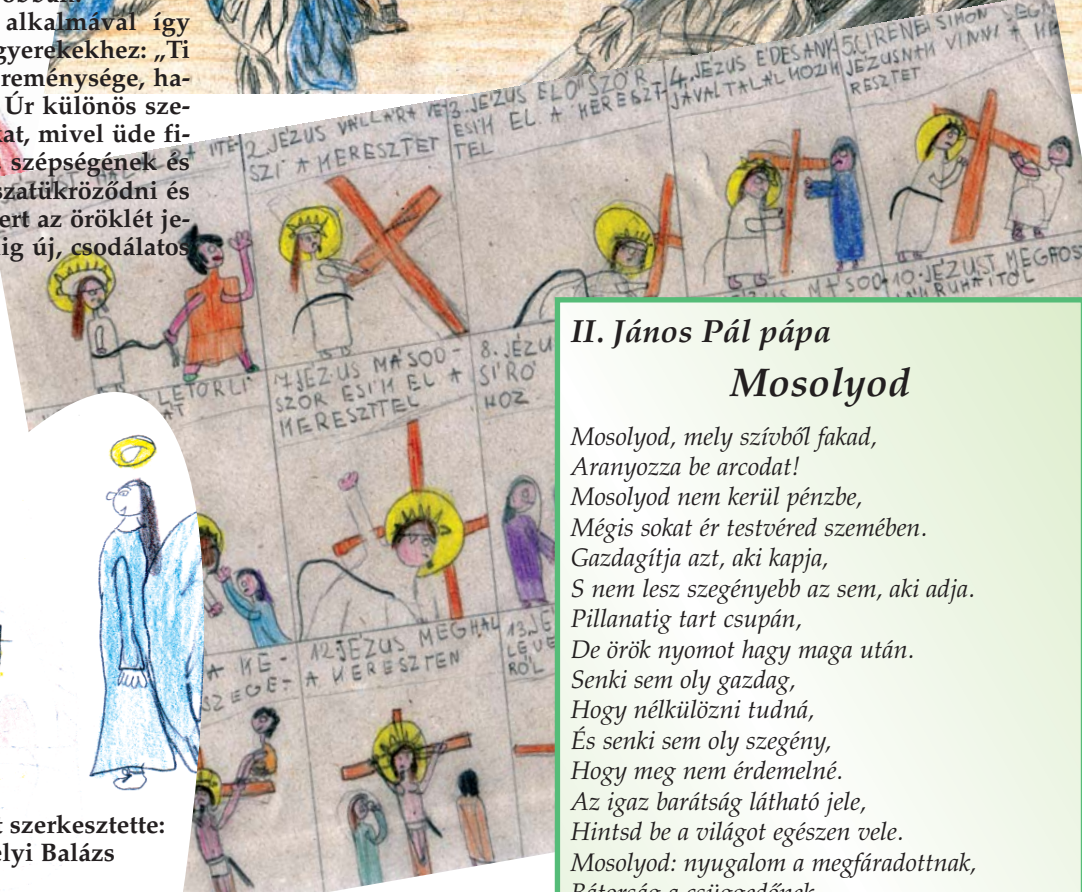 alkalmával így
gyerekekhez: „Ti
reménysége, ha-
Úr különös sze-
kat, mivel üde fi-
szépségének és
szatükröződni és
ert az öröklét je-
ig új, csodálatos
2. JÉZUS VÁLLÁRA VE-
SZI A KERESZTET
3. JÉZUS ELŐSZÖR
ESIK EL A KERESZT-
TEL
4. JÉZUS ÉDESANY-
JÁVAL TALÁLKOZIK
5. CIRENEI SIMON SEGÍT
JÉZUSNAK VINNI A KE
RESZTET
LETÖRLI
7. JÉZUS MÁSOD-
SZOR ESIK EL A
KERESZTTEL
8. JÉZU
SÍRÓ
HOZ
MÁSOD
10. JÉZUST MEGFOS
RUHÁITÓL
A KE-
SZEGE-
12. JÉZUS MEGHAL
A KERESZTEN
13. JÉ
LEVE
RŐL
t szerkesztette:
elyi Balázs
II. János Pál pápa
Mosolyod
Mosolyod, mely szívből fakad,
Aranyozza be arcodat!
Mosolyod nem kerül pénzbe,
Mégis sokat ér testvéred szemében.
Gazdagítja azt, aki kapja,
S nem lesz szegényebb az sem, aki adja.
Pillanatig tart csupán,
De örök nyomot hagy maga után.
Senki sem oly gazdag,
Hogy nélkülözni tudná,
És senki sem oly szegény,
Hogy meg nem érdemelné.
Az igaz barátság látható jele,
Hintsd be a világot egészen vele.
Mosolyod: nyugalom a megfáradottnak,
Bátorság a csüggedőnek,